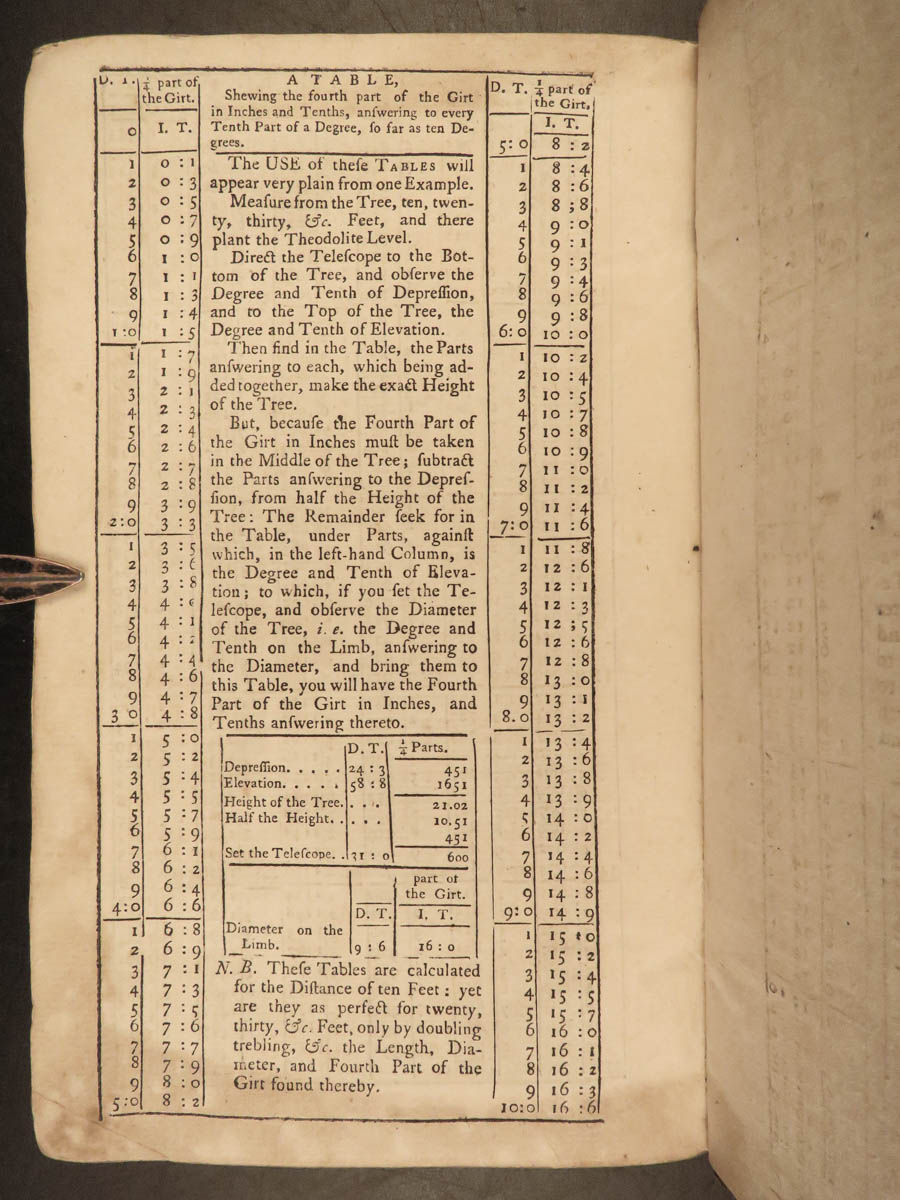 D. T.
¼ part of
the Girt.
0 I. T.
1 0 : 1
2 0 : 3
3 0 : 5
4 0 : 7
5 0 : 9
6 1 : 0
7 1 : 1
8 1 : 3
9 1 : 4
1:0 1 : 5
1 1 : 7
2 1 : 9
3 2 : 1
4 2 : 3
5 2 : 4
6 2 : 6
7 2 : 7
8 2 : 8
9 3 : 9
2:0 3 : 3
1 3 : 5
2 3 : 6
3 3 : 8
4 4 :
5 4 : 1
6 4 : 2
7 4 : 4
8 4 : 6
9 4 : 7
3 0 4 : 8
1 5 : 0
2 5 : 2
3 5 : 4
4 5 : 5
5 5 : 7
6 5 : 9
7 6 : 1
8 6 : 2
9 6 : 4
4:0 6 : 6
1 6 : 8
2 6 : 9
3 7 : 1
4 7 : 3
5 7 : 5
6 7 : 6
7 7 : 7
8 7 : 9
9 8 : 0
5:0 8 : 2
A TABLE,
Shewing the fourth part of the Girt
in Inches and Tenths, anſwering to every
Tenth Part of a Degree, ſo far as ten De-
grees.
The USE of theſe TABLES will
appear very plain from one Example.
Meaſure from the Tree, ten, twen-
ty, thirty, &c. Feet, and there
plant the Theodolite Level.
Direct the Teleſcope to the Bot-
tom of the Tree, and obſerve the
Degree and Tenth of Depreſſion,
and to the Top of the Tree, the
Degree and Tenth of Elevation.
Then find in the Table, the Parts
anſwering to each, which being ad-
ded together, make the exact Height
of the Tree.
But, becauſe the Fourth Part of
the Girt in Inches muſt be taken
in the Middle of the Tree; ſubtract
the Parts anſwering to the Depreſ-
ſion, from half the Height of the
Tree: The Remainder ſeek for in
the Table, under Parts, againſt
which, in the left-hand Column, is
the Degree and Tenth of Eleva-
tion; to which, if you ſet the Te-
leſcope, and obſerve the Diameter
of the Tree, i. e. the Degree and
Tenth on the Limb, anſwering to
the Diameter, and bring them to
this Table, you will have the Fourth
Part of the Girt in Inches, and
Tenths anſwering thereto.
D. T. ¼ Parts.
Depreſſion. . . . . 24 : 3 451
Elevation. . . . . 58 : 8 1651
Height of the Tree. . . . 21.02
Half the Height. . . . . 10.51
451
Set the Teleſcope. . 31 : 0 600
part of
the Girt.
D. T. I. T.
Diameter on the
Limb. 9 : 6 16 : 0
N. B. Theſe Tables are calculated
for the Diſtance of ten Feet: yet
are they as perfect for twenty,
thirty, &c. Feet, only by doubling
trebling, &c. the Length, Dia-
meter, and Fourth Part of the
Girt found thereby.
D. T. ¼ part of
the Girt.
I. T.
5:0 8 : 2
1 8 : 4
2 8 : 6
3 8 ; 8
4 9 : 0
5 9 : 1
6 9 : 3
7 9 : 4
8 9 : 6
9 9 : 8
6:0 10 : 0
1 10 : 2
2 10 : 4
3 10 : 5
4 10 : 7
5 10 : 8
6 10 : 9
7 11 : 0
8 11 : 2
9 11 : 4
7:0 11 : 6
1 11 : 8
2 12 : 6
3 12 : 1
4 12 : 3
5 12 ; 5
6 12 : 6
7 12 : 8
8 13 : 0
9 13 : 1
8.0 13 : 2
1 13 : 4
2 13 : 6
3 13 : 8
4 13 : 9
5 14 : 0
6 14 : 2
7 14 : 4
8 14 : 6
9 14 : 8
9:0 14 : 9
1 15 : 0
2 15 : 2
3 15 : 4
4 15 : 5
5 15 : 7
6 16 : 0
7 16 : 1
8 16 : 2
9 16 : 3
10:0 16 : 6